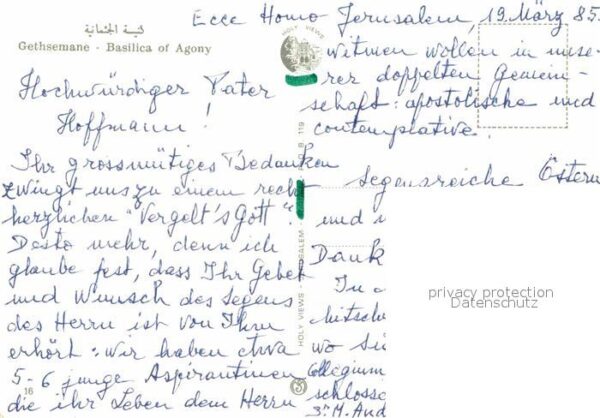 Ecce Homo Jerusalem, 19. März 85.
كنيسة الجثمانية
Gethsemane - Basilica of Agony
HOLY VIEWS
Hochwürdiger Pater
Hoffmann!
Ihr grossmütiges Bedanken
zwingt uns zu einem recht
herzlichen "Vergelt's Gott".
Desto mehr, denn ich
glaube fest, dass Ihr Gebet
und Wunsch des Segens
des Herrn ist von Ihm
erhört: wir haben etwa
5-6 junge Aspirantinen
die ihr Leben dem Herrn
16
HOLY VIEWS JERUSALEM
B 119
widmen wollen in unse-
rer doppelten Gemein-
schaft: apostolische und
contemplative.
Segensreiche Ostern
und
Dank
In
hitsch
wo sie
Collegium
schlosse
3. M. And
privacy protection
Datenschutz